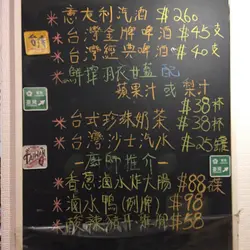 *意大利汽酒 $260
*台灣金牌啤酒 $45支
*台灣經典啤酒 $40支
*鮮搾羽衣甘藍 配
蘋果汁 或 梨汁
$38杯
*台式珍珠奶茶 $38杯
*台灣沙士汽水 $25罐
-廚師推介-
*香蔥滷水炸大腸 $88碟
*滷水鴨(例牌) $98
$58